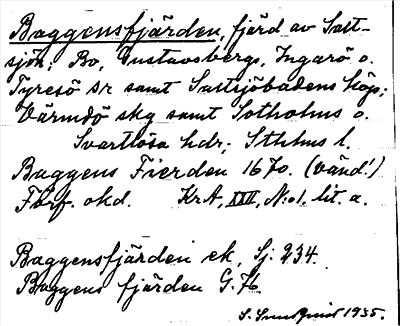 Baggensfjärden, fjärd av Salt-
sjön; Bo, Gustavsbergs, Ingarö o.
Tyresö sr samt Saltsjöbadens köp;
Värmdö skg samt Sotholms o.
Svartlösa hdr; Sthlms l.
Baggens Fierden 1670. (vänd!)
Förf. okd. KrA, XXII, N:o1. lit. a.
Baggensfjärden ek, Sj. 234.
Baggens fjärden G. 76
S. Sundquist 1935.